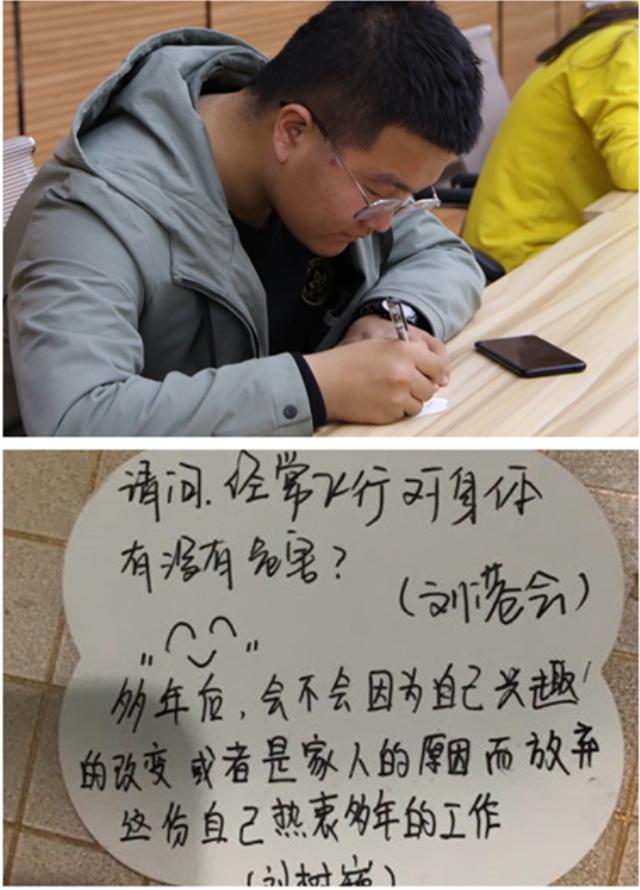 请问.经常飞行对身体
有没有危害?
(刘港会)
多年后,会不会因为自己兴趣
的改变或者是家人的原因而放弃
这份自己热衷多年的工作